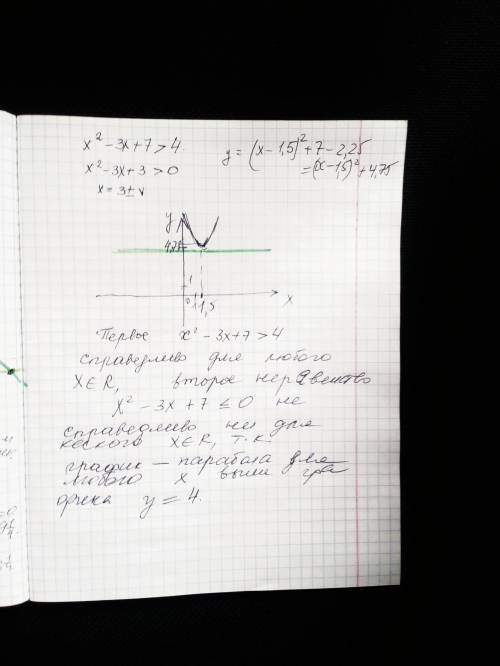 x² - 3x + 7 > 4.
x² - 3x + 3 > 0
x = 3 ±
y = (x - 1,5)² + 7 - 2,25
= (x - 1,5)² + 4,75
y
4,75
1
0
1,5
x
Первое x² - 3x + 7 > 4
справедливо для любого
x∈R, второе неравенство
x² - 3x + 7 ≤ 0 не
справедливо ни для
x∈R, т.к.
график — парабола для
любого x выше гра
фика y = 4.